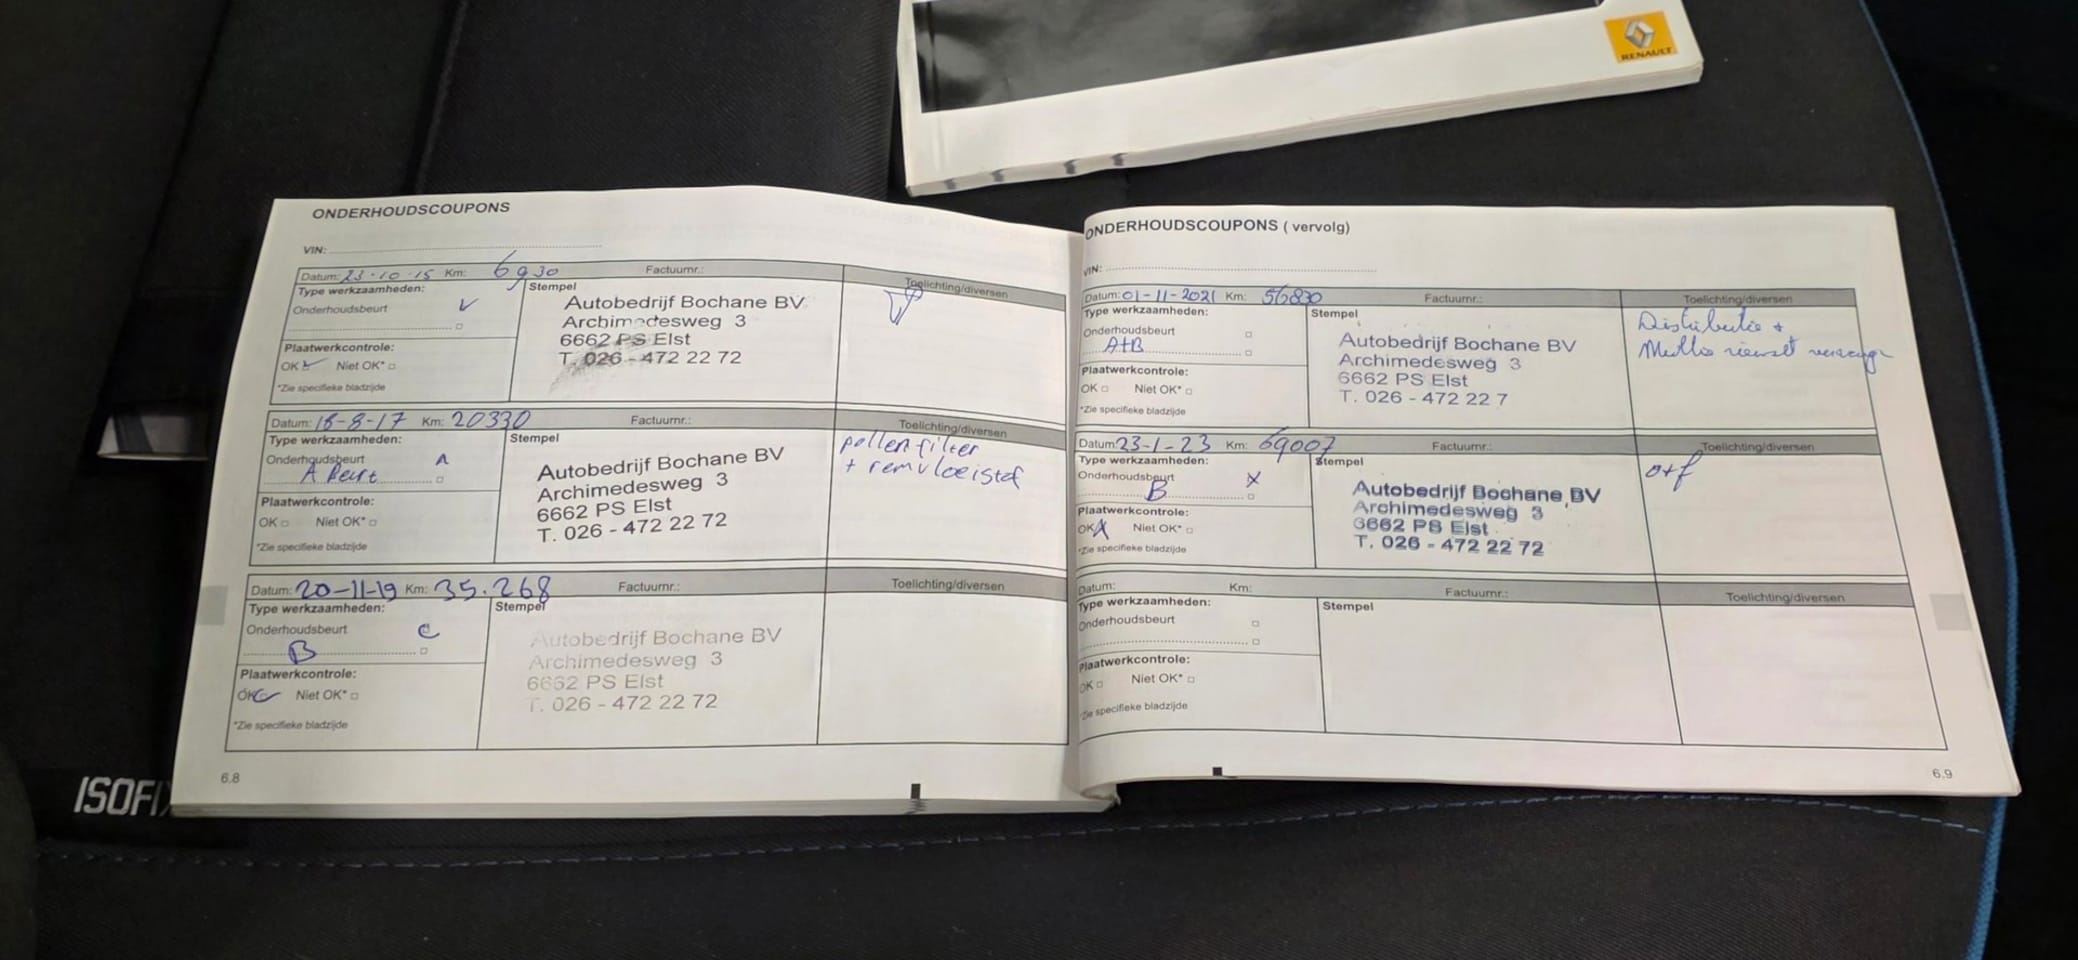 RENAULT
ONDERHOUDSCOUPONS
VIN:
Datum: 23-10-15 Km: 6930 Factuurnr.:
Type werkzaamheden:
Stempel
Toelichting/diversen
Onderhoudsbeurt
Autobedrijf Bochane BV
Archimedesweg 3
6662 PS Elst
T. 026 - 472 22 72
Plaatwerkcontrole:
OK Niet OK*
*Zie specifieke bladzijde
Datum: 18-8-17 Km: 20330 Factuurnr.:
Type werkzaamheden:
Stempel
Toelichting/diversen
Onderhoudsbeurt
A Beurt
Autobedrijf Bochane BV
Archimedesweg 3
6662 PS Elst
T. 026 - 472 22 72
pollenfilter
+ remvloeistof
Plaatwerkcontrole:
OK Niet OK*
*Zie specifieke bladzijde
Datum: 20-11-19 Km: 35.268 Factuurnr.:
Type werkzaamheden:
Stempel
Toelichting/diversen
Onderhoudsbeurt
B
Autobedrijf Bochane BV
Archimedesweg 3
6662 PS Elst
T. 026 - 472 22 72
Plaatwerkcontrole:
OK Niet OK*
*Zie specifieke bladzijde
6.8
ONDERHOUDSCOUPONS ( vervolg)
VIN:
Datum: 01-11-2021 Km: 56830 Factuurnr.:
Type werkzaamheden:
Stempel
Toelichting/diversen
Onderhoudsbeurt
A+B
Autobedrijf Bochane BV
Archimedesweg 3
6662 PS Elst
T. 026 - 472 22 7
Distributie +
Multi riemset
Plaatwerkcontrole:
OK Niet OK*
*Zie specifieke bladzijde
Datum: 23-1-23 Km: 69007 Factuurnr.:
Type werkzaamheden:
Stempel
Toelichting/diversen
Onderhoudsbeurt X
B
Autobedrijf Bochane BV
Archimedesweg 3
6662 PS Elst
T. 026 - 472 22 72
o+f
Plaatwerkcontrole:
OK Niet OK*
*Zie specifieke bladzijde
Datum: Km: Factuurnr.:
Type werkzaamheden:
Stempel
Toelichting/diversen
Onderhoudsbeurt
Plaatwerkcontrole:
OK Niet OK*
*Zie specifieke bladzijde
6.9
ISOFIX